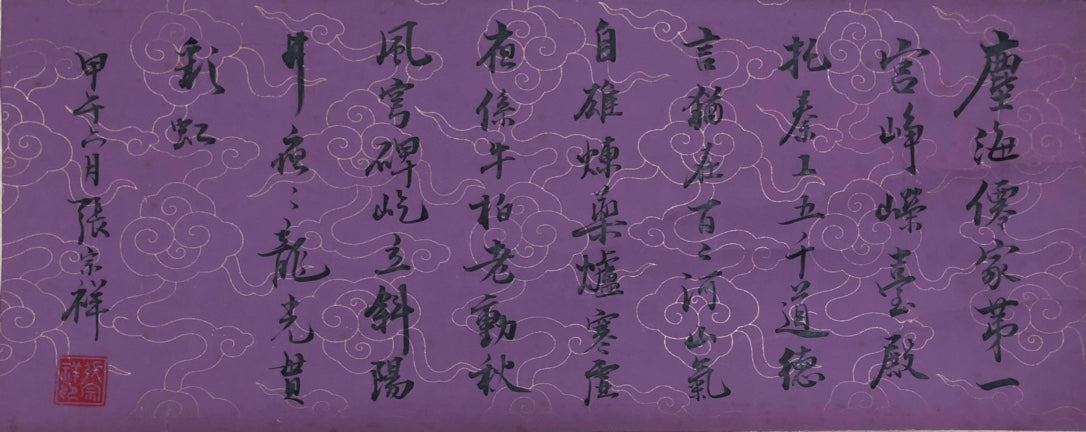 塵海僊家第一
宮崢嶸臺殿
托秦工五千道德
言猶在百二河山氣
自雄煉藥爐寒虛
夜係牛柏老動秋
風穹碑屹立斜陽
夜〻龍光貫
彩虹
甲午六月 張宗祥
張宗祥印